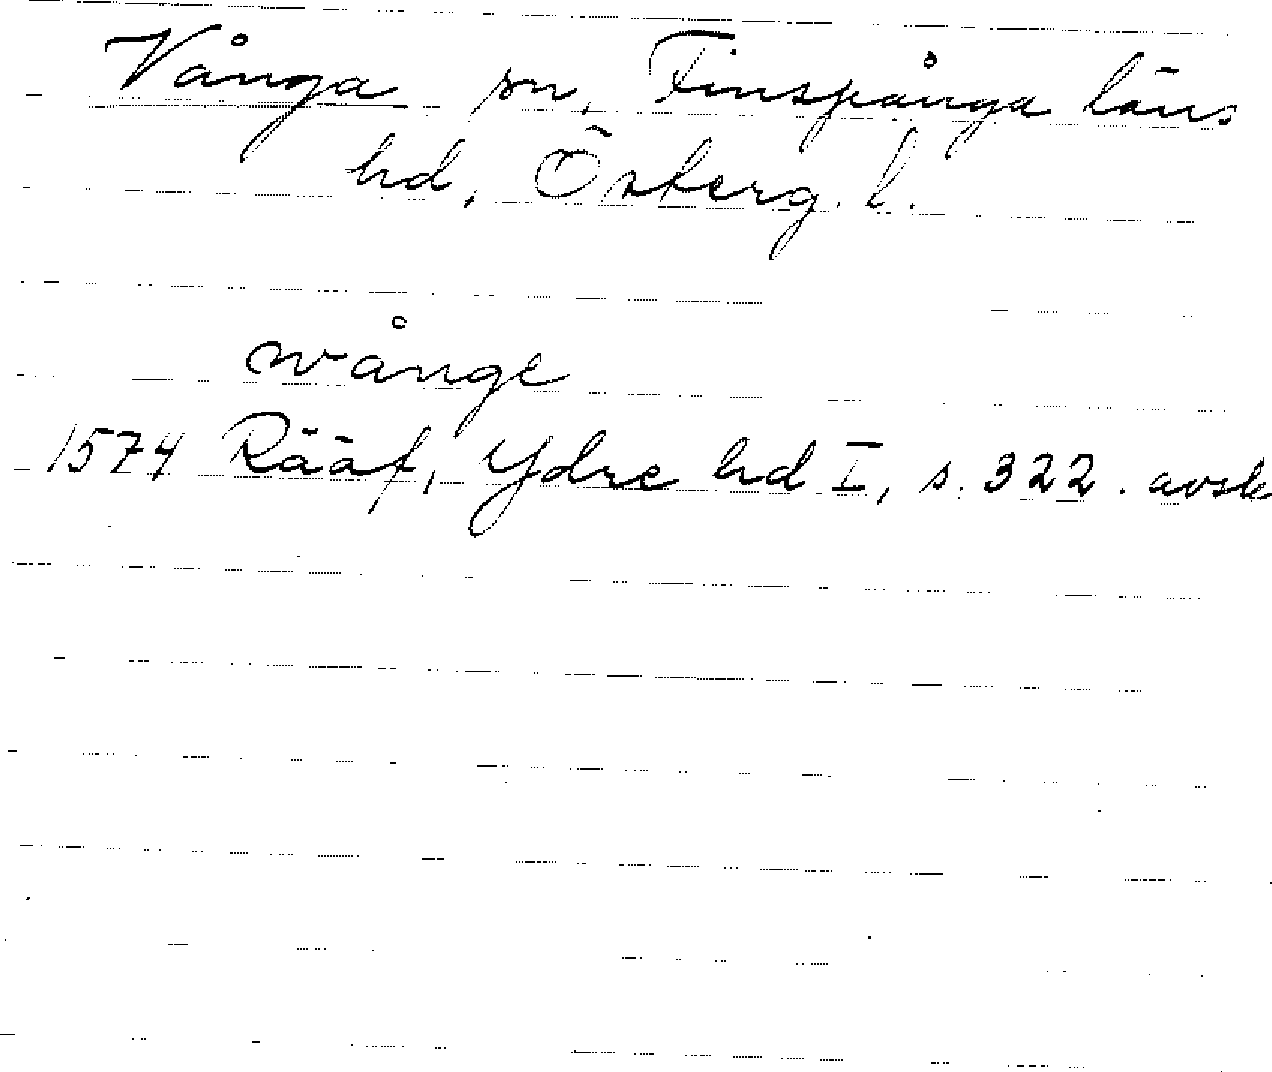 Vånga sn, Finspånga läns
hd, Österg. l.
wånge
1574 Rääf, Ydre hd I, s. 322. avsk